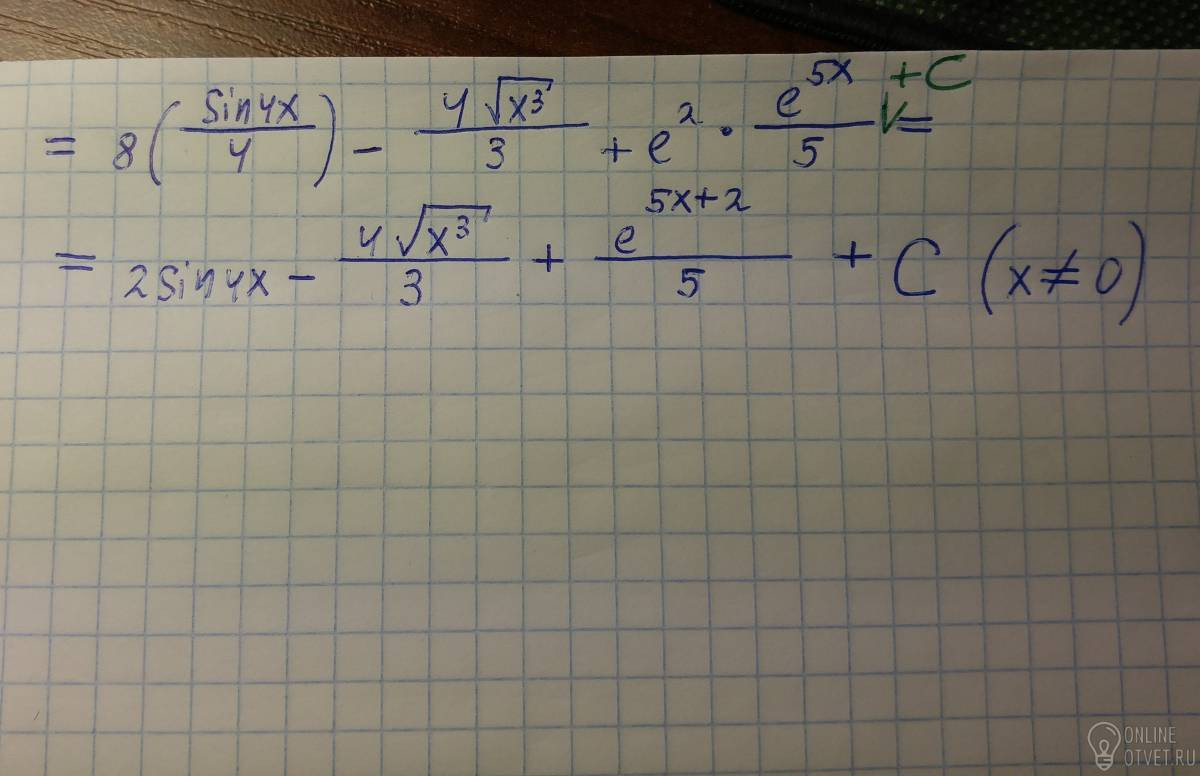 = 8(sin4x/4) - 4√x³/3 + e² · e^5x/5 + C =
= 2sin4x - 4√x³/3 + e^(5x+2)/5 + C (x≠0)
ONLINE
OTVET.RU